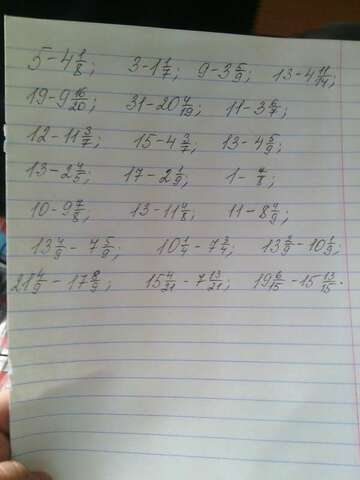 5 - 4 1/8; 3 - 1 1/7; 9 - 3 5/9; 13 - 4 11/14;
19 - 9 16/20; 31 - 20 4/19; 11 - 3 6/7;
12 - 11 3/7; 15 - 4 3/7; 13 - 4 5/9;
13 - 2 4/5; 17 - 2 1/9; 1 - 4/8;
10 - 9 7/8; 13 - 11 4/8; 11 - 8 4/9;
13 4/9 - 7 5/9; 10 1/4 - 7 3/4; 10 1/9;
21 4/9 - 17 8/9; 15 4/21 - 7 13/21; 19 6/15 - 15 13/15.